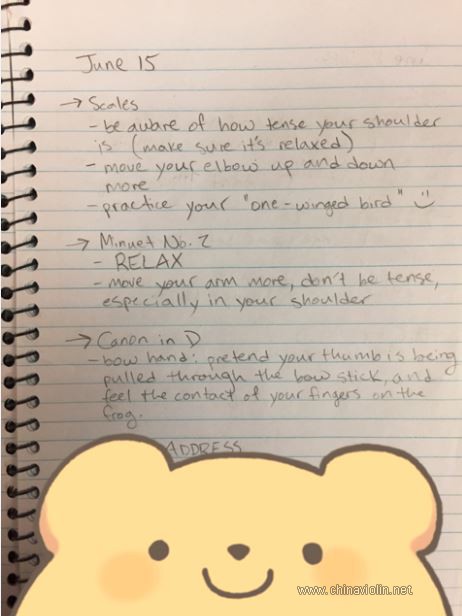 June 15
→ Scales
- be aware of how tense your shoulder
is (make sure it's relaxed)
- move your elbow up and down
more
- practice your "one-winged bird" :)
→ Minuet No. 2
- RELAX
- move your arm more, don't be tense,
especially in your shoulder
→ Canon in D
- bow hand: pretend your thumb is being
pulled through the bow stick, and
feel the contact of your fingers on the
frog.
ADDRESS
www.chinaviolin.net